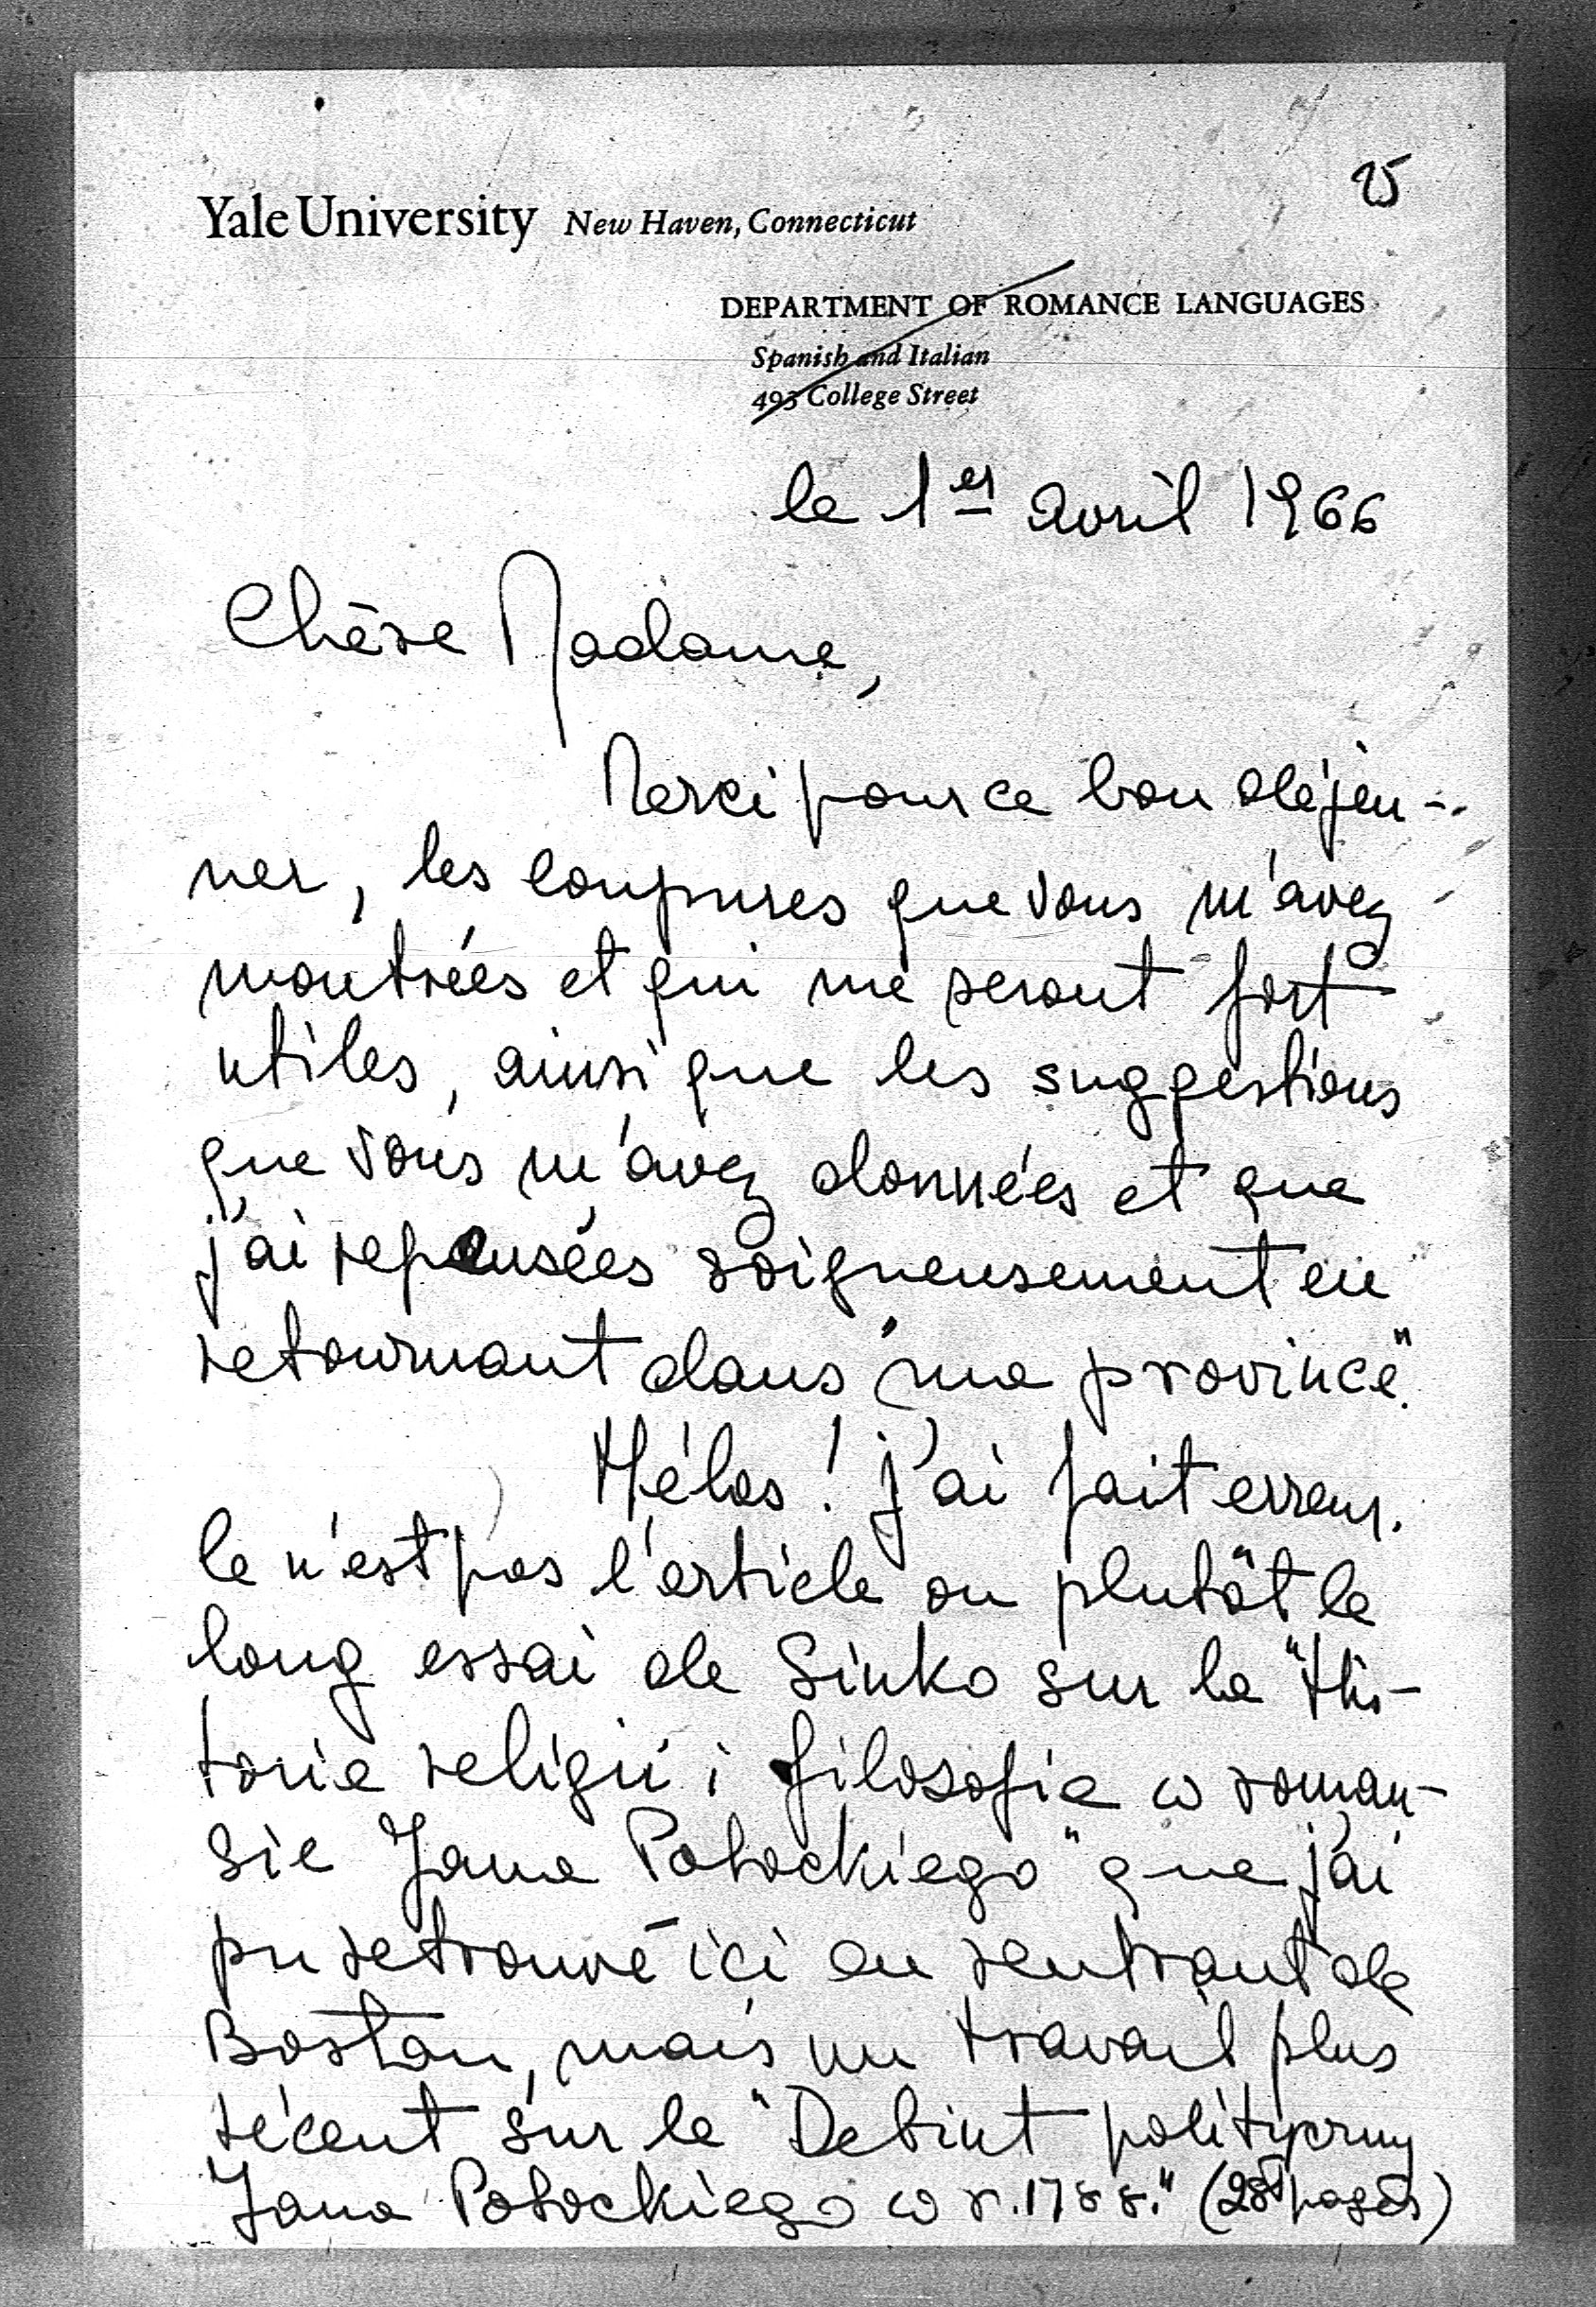 25
Yale University New Haven, Connecticut
DEPARTMENT OF ROMANCE LANGUAGES
Spanish and Italian
493 College Street
le 1er avril 1966
Chère Madame,
Merci pour ce bon déjeu-
ner, les coupures que vous m'avez
montrées et qui me seront fort
utiles, ainsi que les suggestions
que vous m'avez données et que
j'ai repensées soigneusement en
retournant dans "ma province".
Hélas! j'ai fait erreur.
Ce n'est pas l'article ou plutôt le
long essai de Sinko sur la "His-
toria religii i filosofia w roman-
sie Jana Potockiego" que j'ai
pu retrouvé ici en rentrant de
Boston, mais un travail plus
récent sur le "Debiut polityczny
Jana Potockiego w r. 1788." (28 pages)